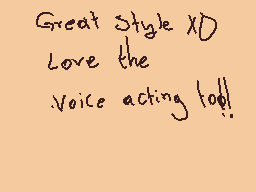 Great Style XD
Love the
voice acting too!!